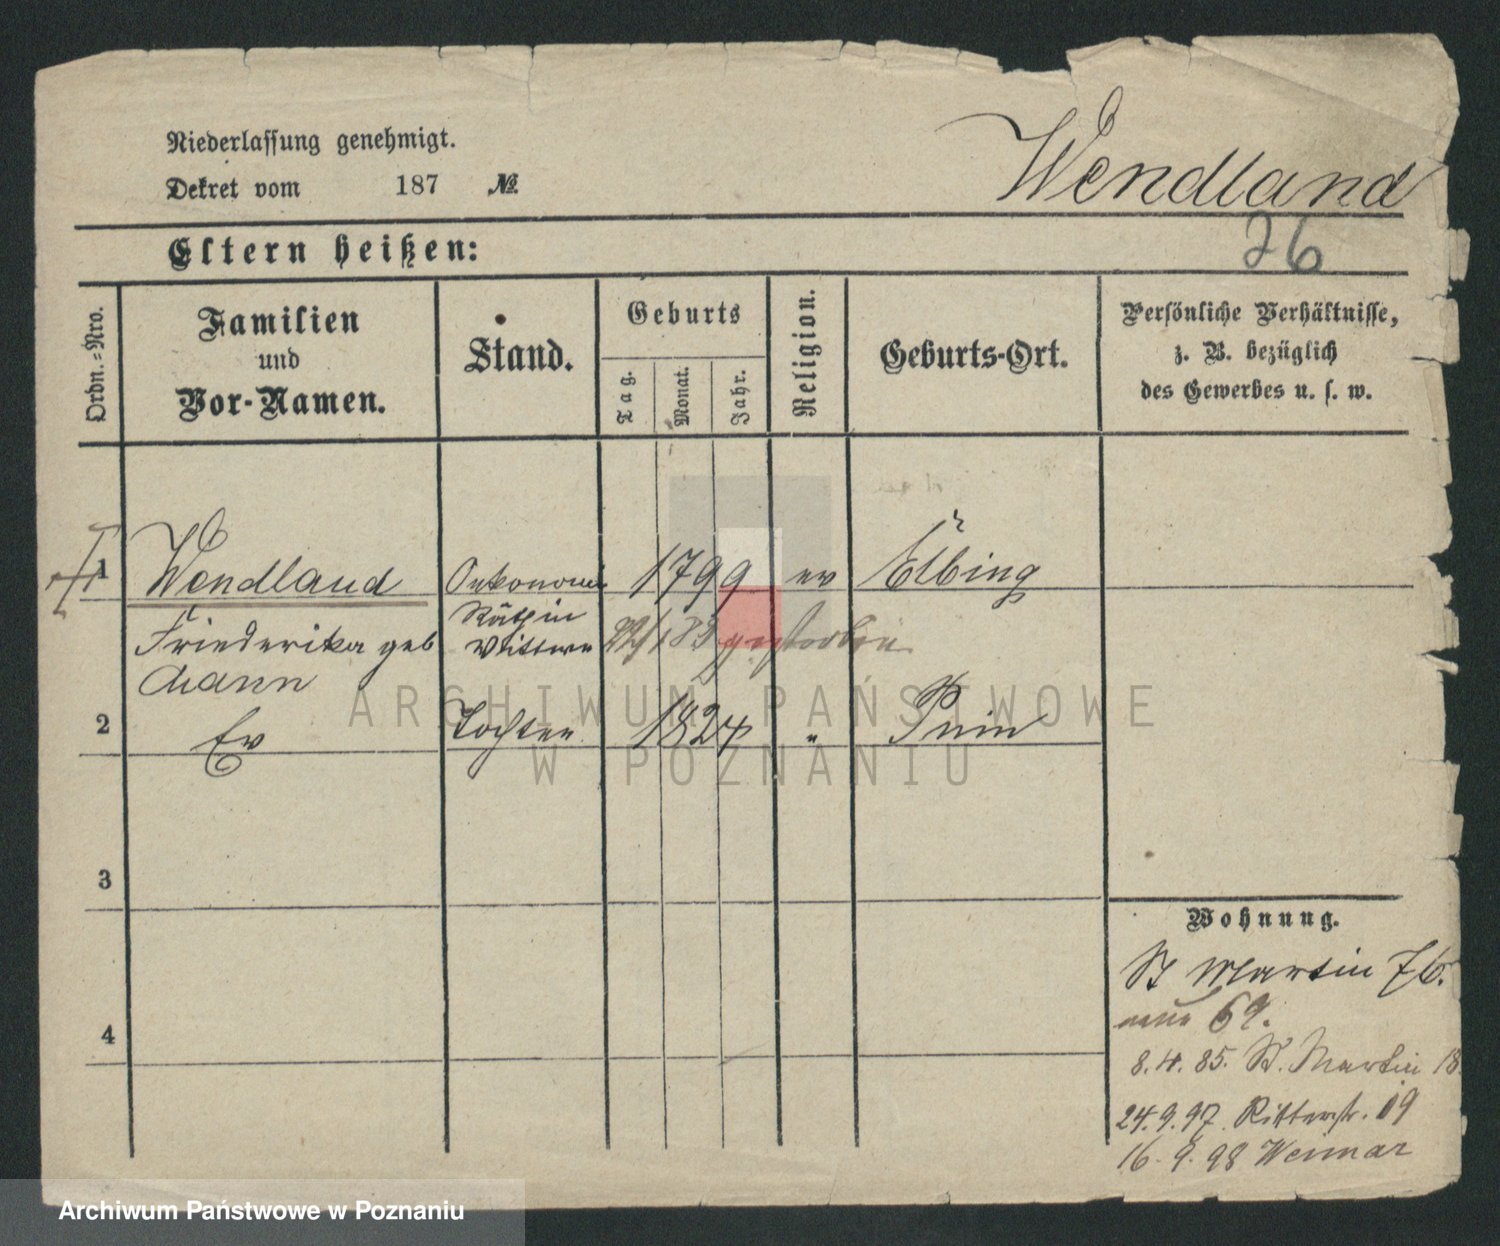 Niederlassung genehmigt.
Dekret vom 187 №
Wendland
26
Eltern heißen:
Ordn.=Nro.
Familien
und
Vor-Namen.
Stand.
Geburts
Tag.
Monat.
Jahr.
Religion.
Geburts-Ort.
Persönliche Verhältnisse,
z. B. bezüglich
des Gewerbes u. s. w.
1 Wendland Oekonomie 1799 ev Elbing
Friederika geb Räthin Wittwe 22/1 83 gestorben
Mann
2 Ev Tochter 1824 " Pnin
ARCHIWUM PAŃSTWOWE
W POZNANIU
3
4
Wohnung.
St Martin 76.
neue 69.
8.4.85. St. Martin 18
24.9.97. Ritterstr. 19
16.9.98 Weimar
Archiwum Państwowe w Poznaniu